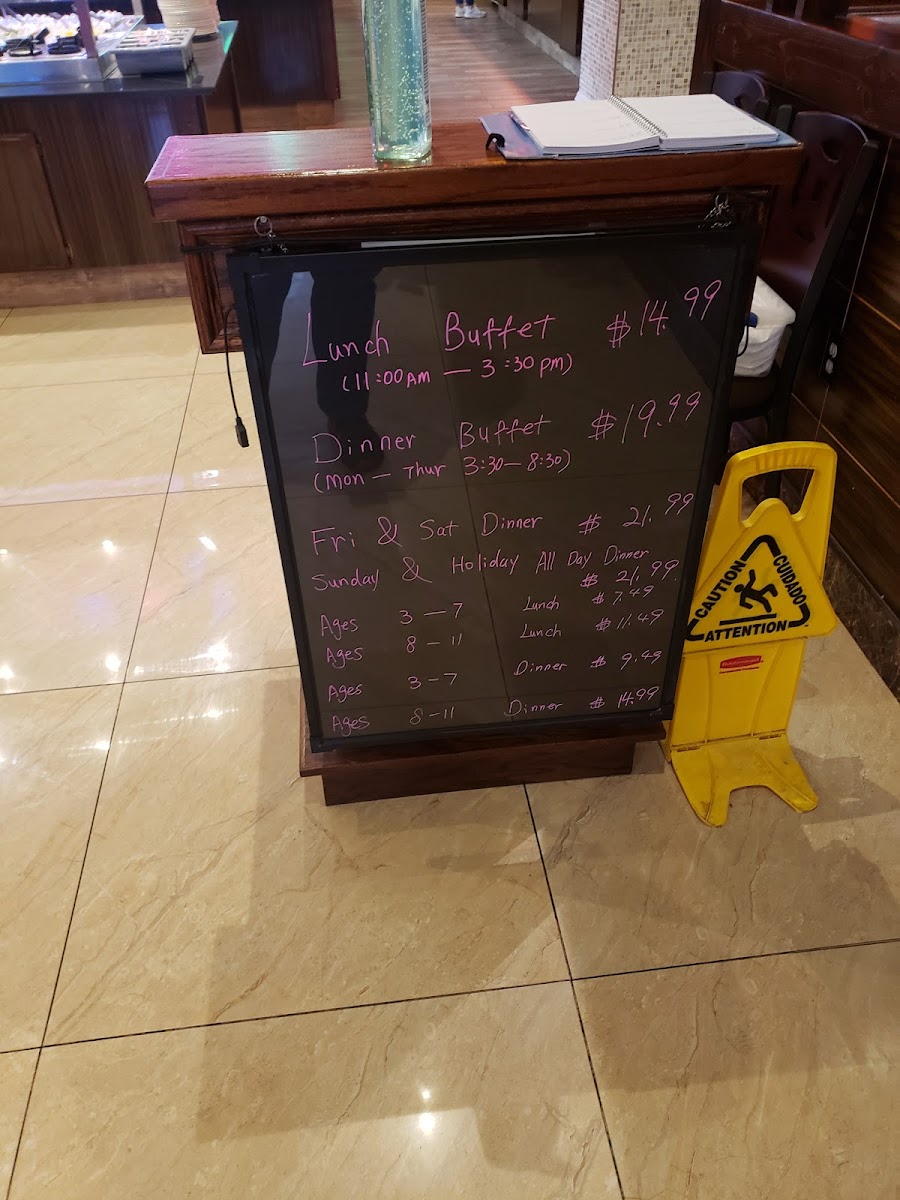 Lunch Buffet $14.99
(11:00AM — 3:30pm)
Dinner Buffet $19.99
(Mon — Thur 3:30 — 8:30)
Fri & Sat Dinner $21.99
Sunday & Holiday All Day Dinner
$21.99
Ages 3 — 7 Lunch $7.49
Ages 8 — 11 Lunch $11.49
Ages 3 — 7 Dinner $9.49
Ages 8 — 11 Dinner $14.99
CAUTION
CUIDADO
ATTENTION
Rubbermaid